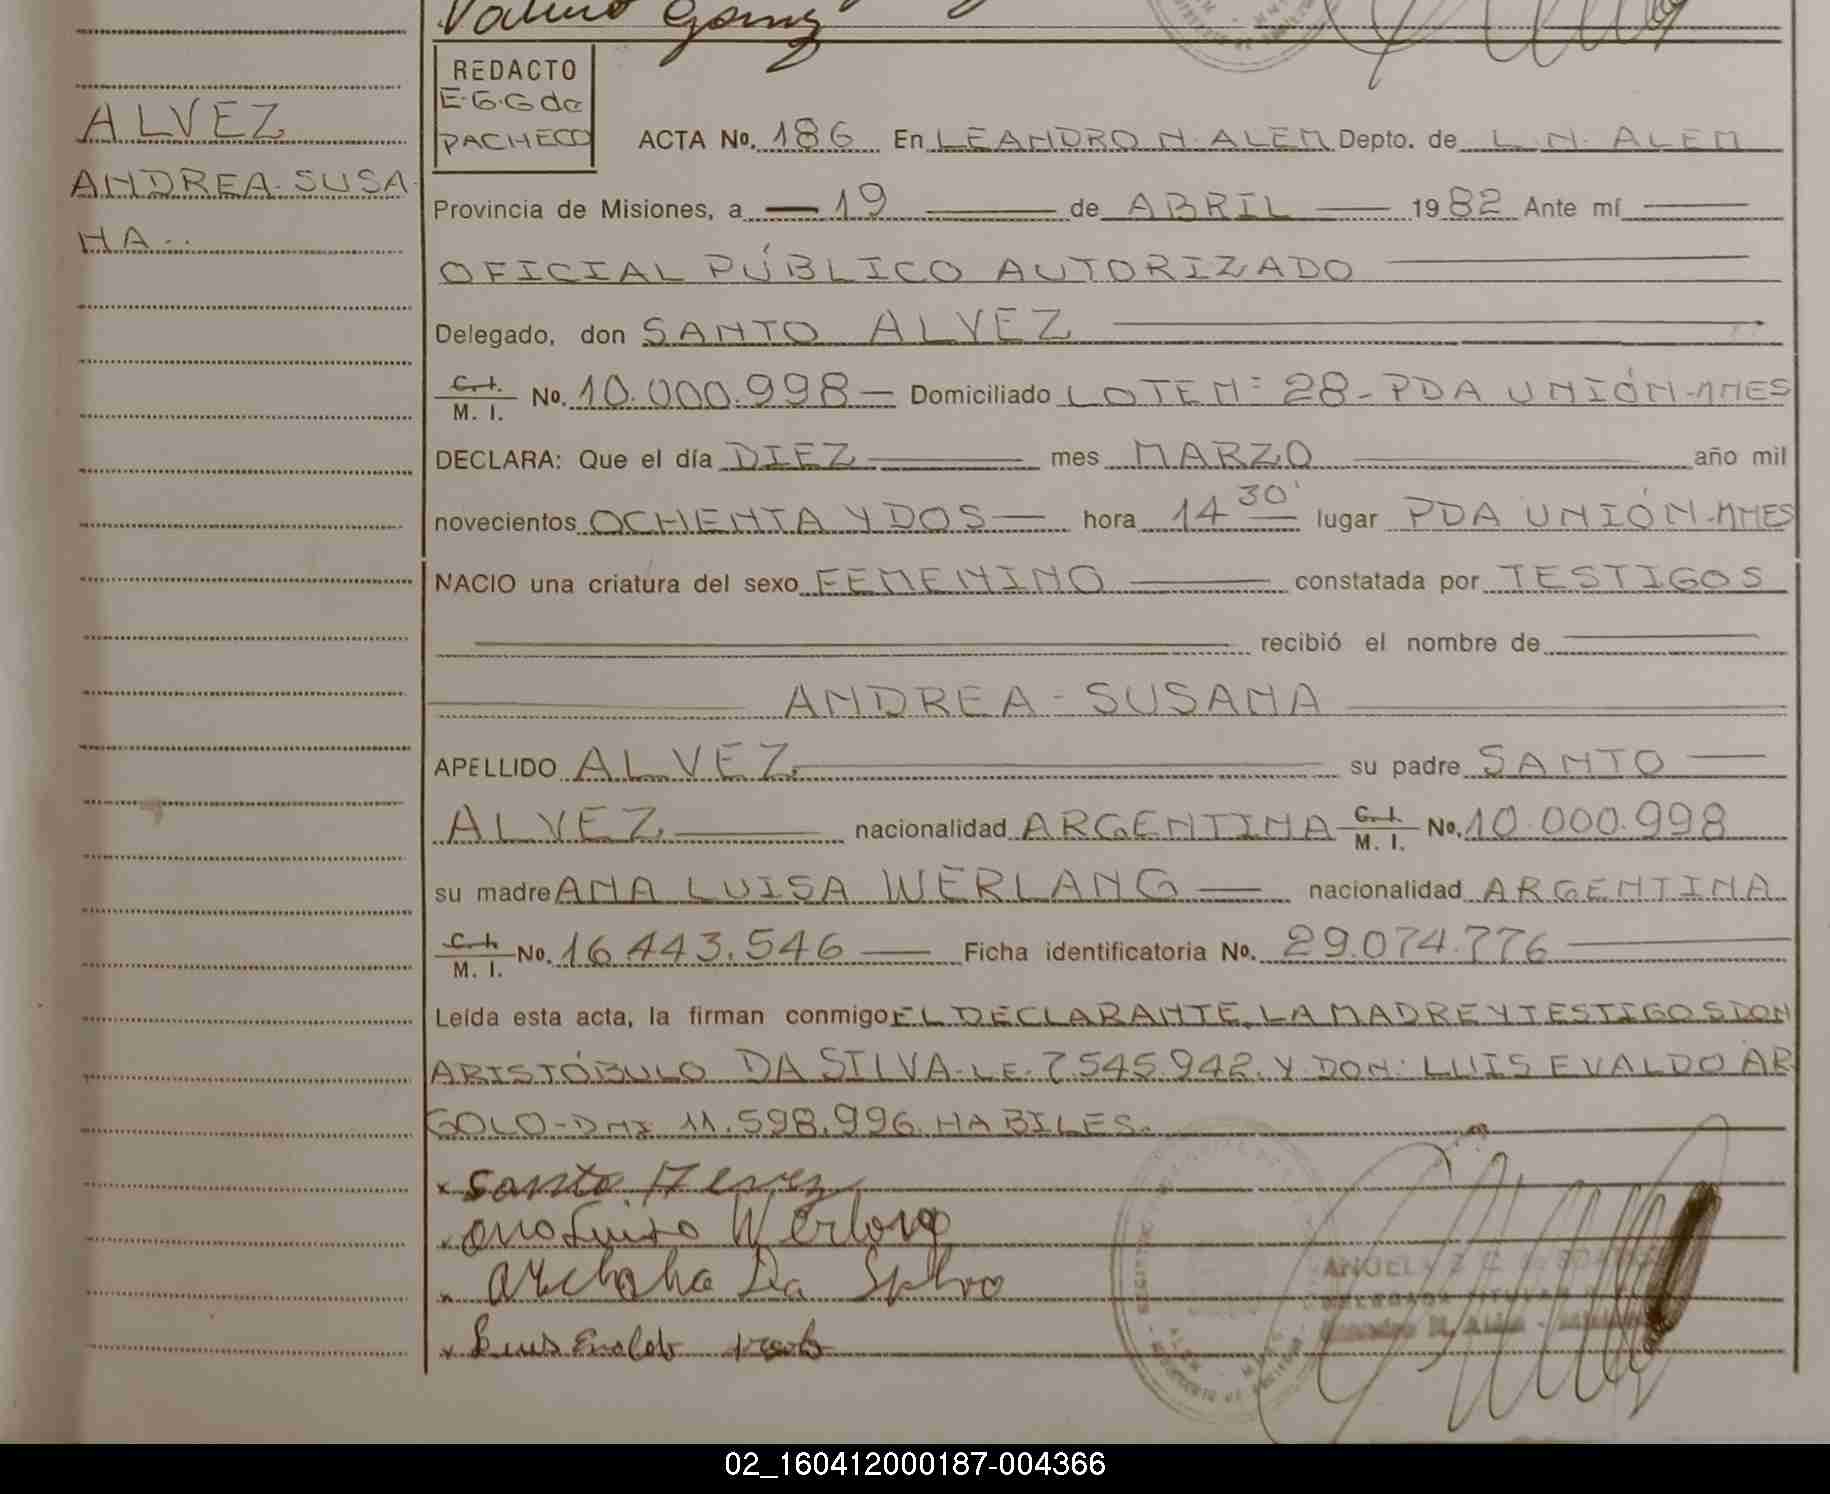 Valerio Gomez
REDACTO
E.G.G de
PACHECO
ALVEZ
ANDREA-SUSA-
NA..
ACTA No. 186 En LEANDRO N. ALEM Depto. de L.N. ALEM
Provincia de Misiones, a 19 de ABRIL 1982 Ante mí
OFICIAL PÚBLICO AUTORIZADO
Delegado, don SANTO ALVEZ
C. I. M. I. No. 10.000.998 Domiciliado LOTE Nº 28 - PDA UNIÓN-MNES
DECLARA: Que el día DIEZ mes MARZO año mil
novecientos OCHENTA Y DOS hora 14 30' lugar PDA UNIÓN-MNES
NACIO una criatura del sexo FEMENINO constatada por TESTIGOS
recibió el nombre de
ANDREA - SUSANA
APELLIDO ALVEZ su padre SANTO
ALVEZ nacionalidad ARGENTINA C. I. M. I. No. 10.000.998
su madre ANA LUISA WERLANG nacionalidad ARGENTINA
C. I. M. I. No. 16.443.546 Ficha identificatoria No. 29.074.776
Leída esta acta, la firman conmigo EL DECLARANTE, LA MADRE Y TESTIGOS DON
ARISTÓBULO DA SILVA-LE. 7.545.942. Y DON: LUIS EVALDO AR-
GOLO-DNI 11.598.996. HABILES.
x Santo Alvez
x Ana Luisa Werlang
x Da Silva
x Luis Evaldo
02_160412000187-004366